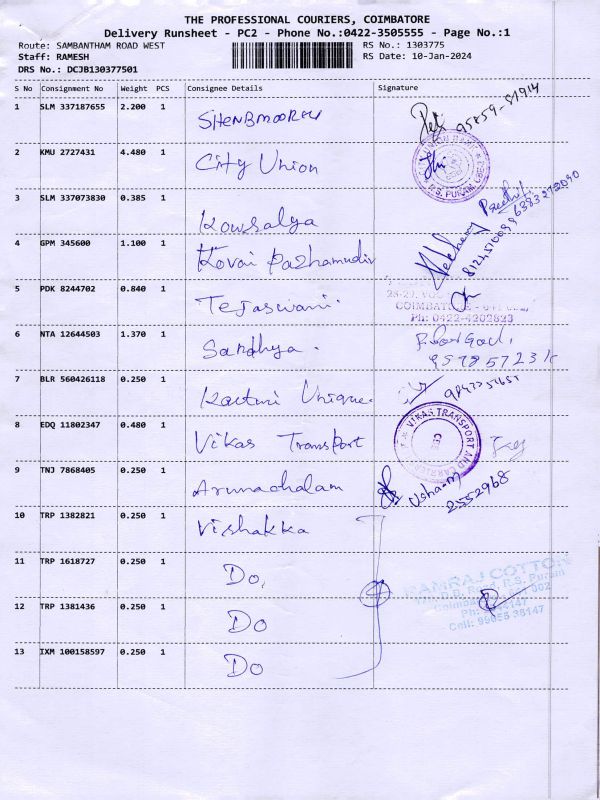 THE PROFESSIONAL COURIERS, COIMBATORE
Delivery Runsheet - PC2 - Phone No.:0422-3505555 - Page No.:1
Route: SAMBANTHAM ROAD WEST
RS No.: 1303775
Staff: RAMESH
RS Date: 10-Jan-2024
DRS No.: DCJB130377501
S No Consignment No Weight PCS Consignee Details Signature
1 SLM 337187655 2.200 1
95859-81914
2 KMU 2727431 4.480 1 City Union
R.S. PURAM, CBE
3 SLM 337073830 0.385 1 Kowsalya
Preethi
4 GPM 345600 1.100 1 Kovai Pazhamudir
5 PDK 8244702 0.840 1 Tejaswani.
COIMBATORE
Ph: 0422-4202823
6 NTA 12644503 1.370 1 Sandhya.
7 BLR 560426118 0.250 1 Unique.
8 EDQ 11802347 0.480 1 Vikas Transport
VIKAS TRANSPORT AND CARRIER
9 TNJ 7868405 0.250 1 Arunachalam
2552968
10 TRP 1382821 0.250 1 Vishakka
11 TRP 1618727 0.250 1 Do,
RAMRAJ COTTON
D.B. Road, R.S. Puram
Coimbatore 002
12 TRP 1381436 0.250 1 Do
13 IXM 100158597 0.250 1 Do